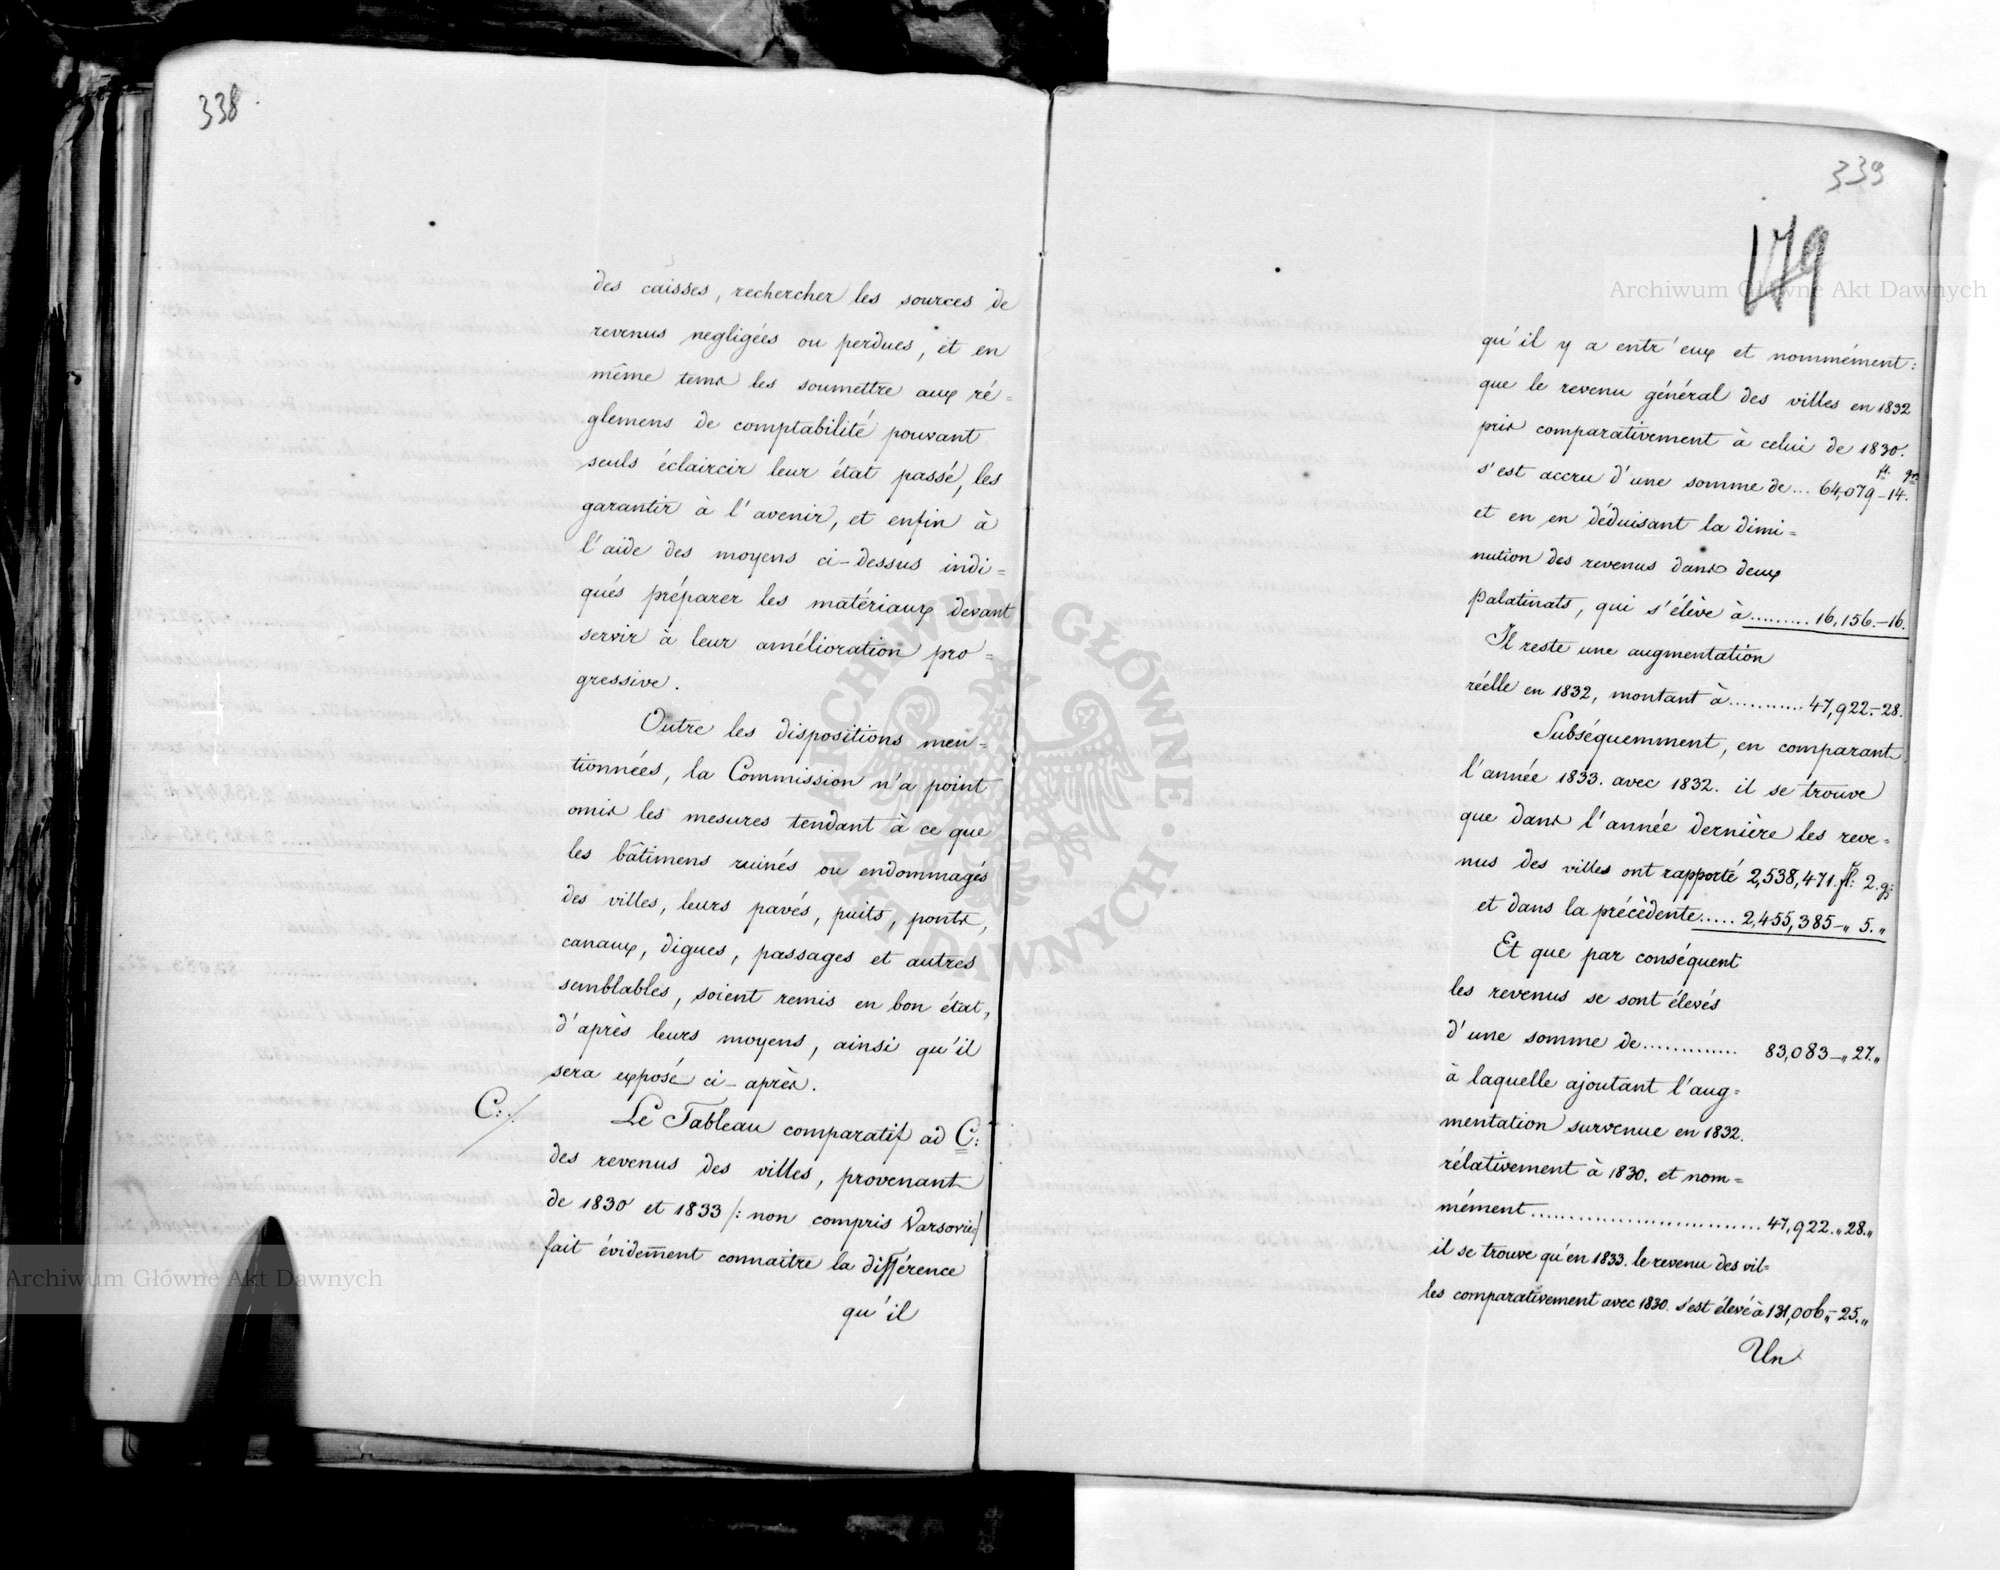 338
des caisses, rechercher les sources de
revenus negligées ou perdues, et en
même tems les soumettre aux ré=
glemens de comptabilité pouvant
seuls éclaircir leur état passé, les
garantir à l'avenir, et enfin à
l'aide des moyens ci-dessus indi=
qués préparer les matériaux devant
servir à leur amélioration pro=
gressive.
Outre les dispositions men=
tionnées, la Commission n'a point
omis les mesures tendant à ce que
les bâtimens ruinés ou endommagés
des villes, leurs pavés, puits, ponts,
canaux, digues, passages et autres
semblables, soient remis en bon état,
d'après leurs moyens, ainsi qu'il
sera exposé ci-après.
C:/.
Le Tableau comparatif ad C:
des revenus des villes, provenant
de 1830 et 1833 /: non compris Varsovie:/
fait évidemment connaître la différence
qu'il
339
179
qu'il y a entr'eux et nommément:
que le revenu général des villes en 1832
pris comparativement à celui de 1830.
s'est accru d'une somme de... fl. 64,079-14. gr.
et en en déduisant la dimi=
nution des revenus dans deux
palatinats, qui s'élève à ......... 16,156.-16.
Il reste une augmentation
réelle en 1832, montant à ........... 47,922.-28.
Subséquemment, en comparant
l'année 1833. avec 1832. il se trouve
que dans l'année dernière les reve=
nus des villes ont rapporté 2,538,471. fl: 2. g:
et dans la précèdente..... 2,455,385-„ 5.„
Et que par conséquent
les revenus se sont élevés
d'une somme de ............. 83,083-„ 27.„
à laquelle ajoutant l'aug=
mentation survenue en 1832.
rélativement à 1830. et nom=
mément ............................ 47,922.„28.„
il se trouve qu'en 1833. le revenu des vil=
les comparativement avec 1830. s'est élevé à 131,006„-25.„
Un
Archiwum Główne Akt Dawnych
Archiwum Główne Akt Dawnych
ARCHIWUM GŁÓWNE · AKT DAWNYCH ·